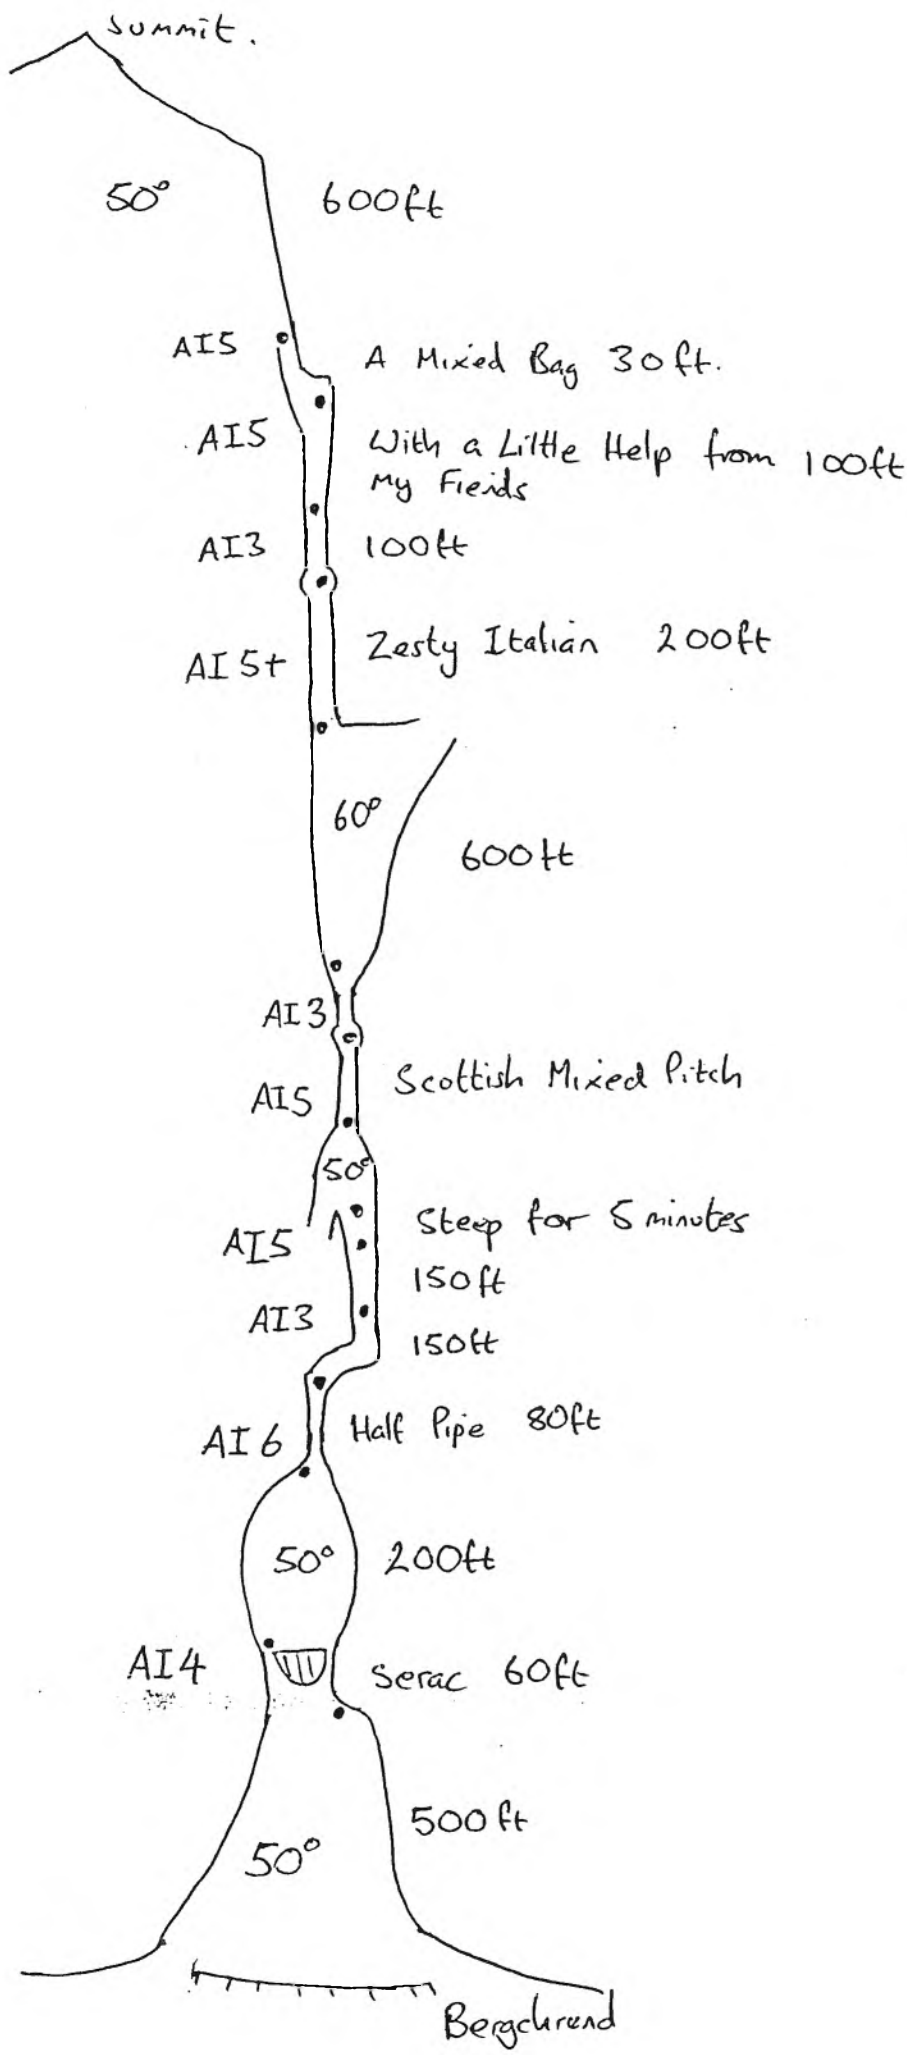 Summit.
50° 600ft
AI5 A Mixed Bag 30ft.
AI5 With a Little Help from 100ft
My Fiends
AI3 100ft
AI5+ Zesty Italian 200ft
60°
600ft
AI3
AI5 Scottish Mixed Pitch
50°
AI5 Steep for 5 minutes
150ft
AI3
150ft
AI6 Half Pipe 80ft
50° 200ft
AI4 Serac 60ft
500ft
50°
Bergchrund